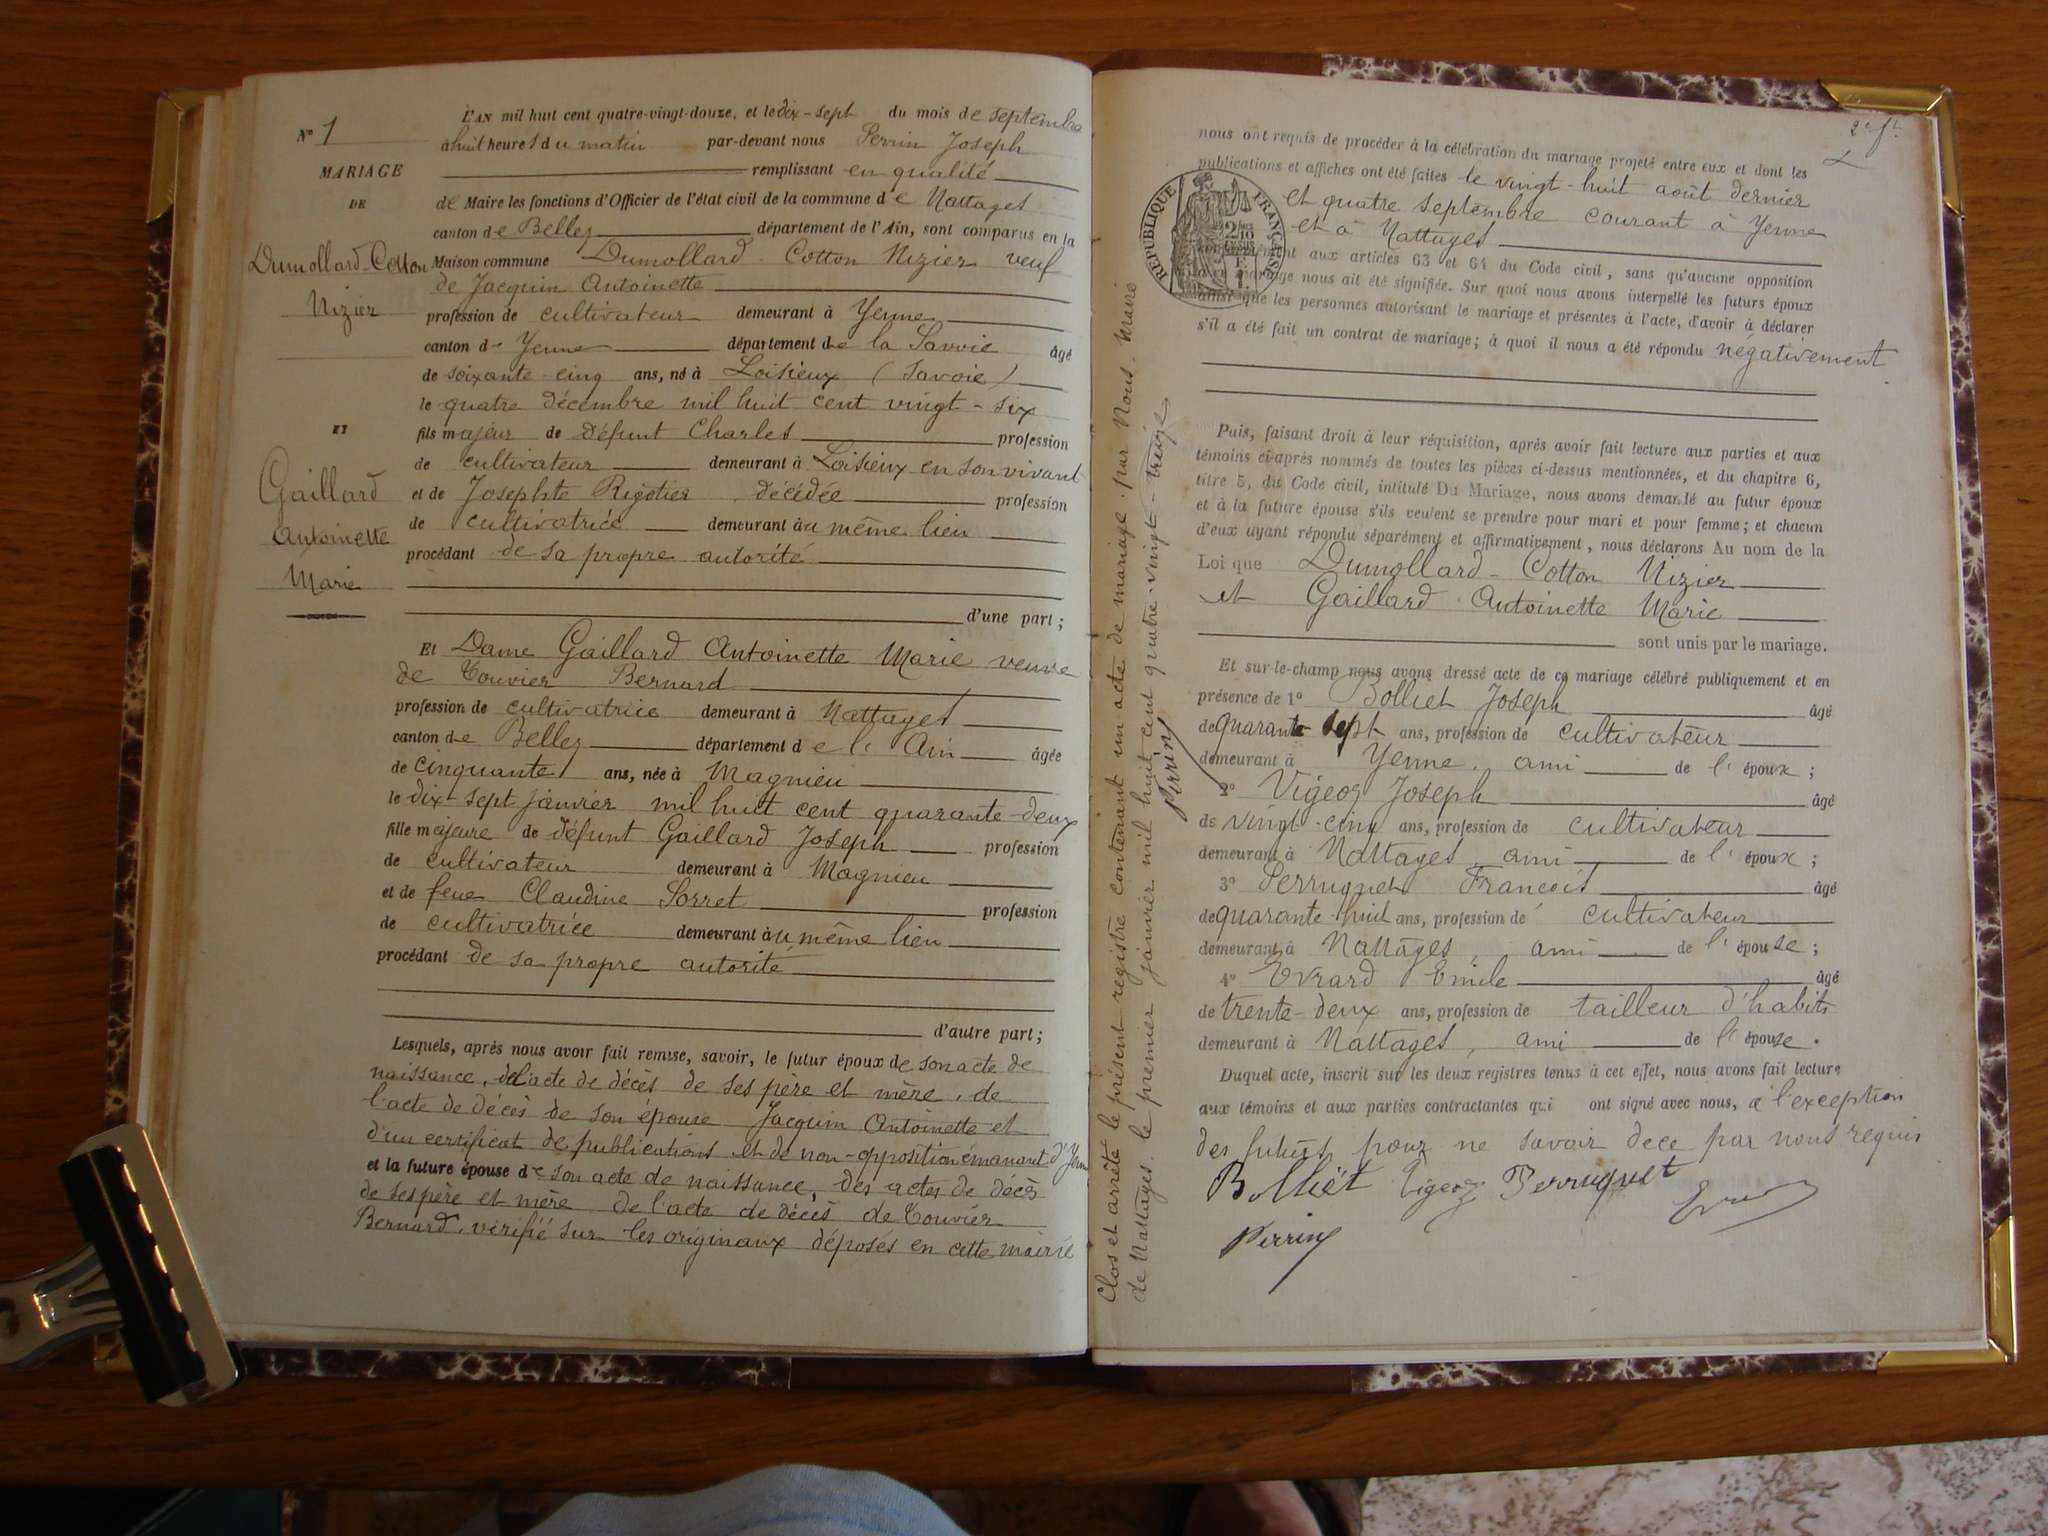 N° 1
MARIAGE
DE
Dumollard-Cotton
Nizier
ET
Gaillard
Antoinette
Marie
L'AN mil huit cent quatre-vingt-douze, et le dix-sept du mois de septembre
à huit heures du matin par-devant nous Perrin Joseph
remplissant en qualité
de Maire les fonctions d'Officier de l'état civil de la commune de Nattages
canton de Belley département de l'Ain, sont comparus en la
Maison commune Dumollard-Cotton Nizier veuf
de Jacquin Antoinette
profession de cultivateur demeurant à Yenne
canton de Yenne département de la Savoie âgé
de soixante-cinq ans, né à Loisieux (Savoie)
le quatre décembre mil huit cent vingt-six
fils majeur de défunt Charles profession
de cultivateur demeurant à Loisieux en son vivant
et de Josephte Rigotier décédée profession
de cultivatrice demeurant au même lieu
procédant de sa propre autorité
d'une part ;
Et Dame Gaillard Antoinette Marie veuve
de Touvier Bernard
profession de cultivatrice demeurant à Nattages
canton de Belley département de l'Ain âgée
de cinquante ans, née à Magnieu
le dix-sept janvier mil huit cent quarante-deux
fille majeure de défunt Gaillard Joseph profession
de cultivateur demeurant à Magnieu
et de feue Claudine Sorret profession
de cultivatrice demeurant au même lieu
procédant de sa propre autorité
d'autre part ;
Lesquels, après nous avoir fait remise, savoir, le futur époux de son acte de
naissance, de l'acte de décès de ses père et mère, de
l'acte de décès de son épouse Jacquin Antoinette et
d'un certificat de publications et de non-opposition émanant d'Yenne
et la future épouse de son acte de naissance, des actes de décès
de ses père et mère de l'acte de décès de Touvier
Bernard, vérifié sur les originaux déposés en cette mairie
Clos et arrêté le présent registre contenant un acte de mariage par Nous Maire
de Nattages. le premier janvier mil huit cent quatre-vingt-treize
Perrin
2e ft
nous ont requis de procéder à la célébration du mariage projeté entre eux et dont les
publications et affiches ont été faites le vingt-huit août dernier
et quatre septembre courant à Yenne
et à Nattages
RÉPUBLIQUE FRANÇAISE
aux articles 63 et 64 du Code civil, sans qu'aucune opposition
nous ait été signifiée. Sur quoi nous avons interpellé les futurs époux
ainsi que les personnes autorisant le mariage et présentes à l'acte, d'avoir à déclarer
s'il a été fait un contrat de mariage ; à quoi il nous a été répondu négativement
Puis, faisant droit à leur réquisition, après avoir fait lecture aux parties et aux
témoins ci-après nommés de toutes les pièces ci-dessus mentionnées, et du chapitre 6,
titre 5, du Code civil, intitulé Du Mariage, nous avons demandé au futur époux
et à la future épouse s'ils veulent se prendre pour mari et pour femme ; et chacun
d'eux ayant répondu séparément et affirmativement, nous déclarons Au nom de la
Loi que Dumollard-Cotton Nizier
et Gaillard Antoinette Marie
sont unis par le mariage.
Et sur-le-champ nous avons dressé acte de ce mariage célébré publiquement et en
présence de 1° Bolliet Joseph âgé
de quarante sept ans, profession de cultivateur
demeurant à Yenne, ami de l'époux ;
2° Vigeoz Joseph âgé
de vingt-cinq ans, profession de cultivateur
demeurant à Nattages, ami de l'époux ;
3° Perruquet François âgé
de quarante-huit ans, profession de cultivateur
demeurant à Nattages, ami de l'épouse ;
4° Evrard Emile âgé
de trente-deux ans, profession de tailleur d'habits
demeurant à Nattages, ami de l'épouse.
Duquel acte, inscrit sur les deux registres tenus à cet effet, nous avons fait lecture
aux témoins et aux parties contractantes qui ont signé avec nous, à l'exception
des futurs pour ne savoir de ce par nous requis
Bolliet Vigeoz Perruquet
Perrin